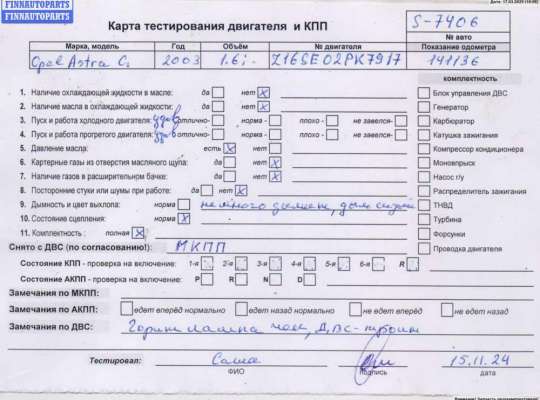 FINNAUTOPARTS
FINNAUTOPARTS
Карта тестирования двигателя и КПП
S-7406
№ авто
Марка, модель Год Объём № двигателя Показание одометра
Opel Astra G 2003 1.6i Z16SE02PK7917 141136
комплектность
1. Наличие охлаждающей жидкости в масле: да нет X
2. Наличие масла в охлаждающей жидкости: да нет X
3. Пуск и работа холодного двигателя: удов отлично- норма - плохо - не завелся-
4. Пуск и работа прогретого двигателя: удов отлично- норма - плохо - не завелся-
5. Давление масла: есть X нет
6. Картерные газы из отверстия масляного щупа: да нет
7. Наличие газов в расширительном бачке: да нет
8. Посторонние стуки или шумы при работе: да нет X
9. Дымность и цвет выхлопа: норма немного дымлен, дым сизый
10. Состояние сцепления: норма X
11. Комплектность: полная X
Блок управления ДВС
Генератор
Карбюратор
Катушка зажигания
Компрессор кондиционера
Моновпрыск
Насос г/у
Распределитель зажигания
ТНВД
Турбина
Форсунки
Проводка двигателя
Снято с ДВС (по согласованию!): МКПП
Состояние КПП - проверка на включение: 1-я 2-я 3-я 4-я 5-я 6-я R
Состояние АКПП - проверка на включение: P R N D
Замечания по МКПП:
Замечания по АКПП: едет вперёд нормально едет назад нормально не едет вперёд не едет назад
Замечания по ДВС: Горит лампа чек, ДВС-
Тестировал: Саша 15.11.24
ФИО подпись дата